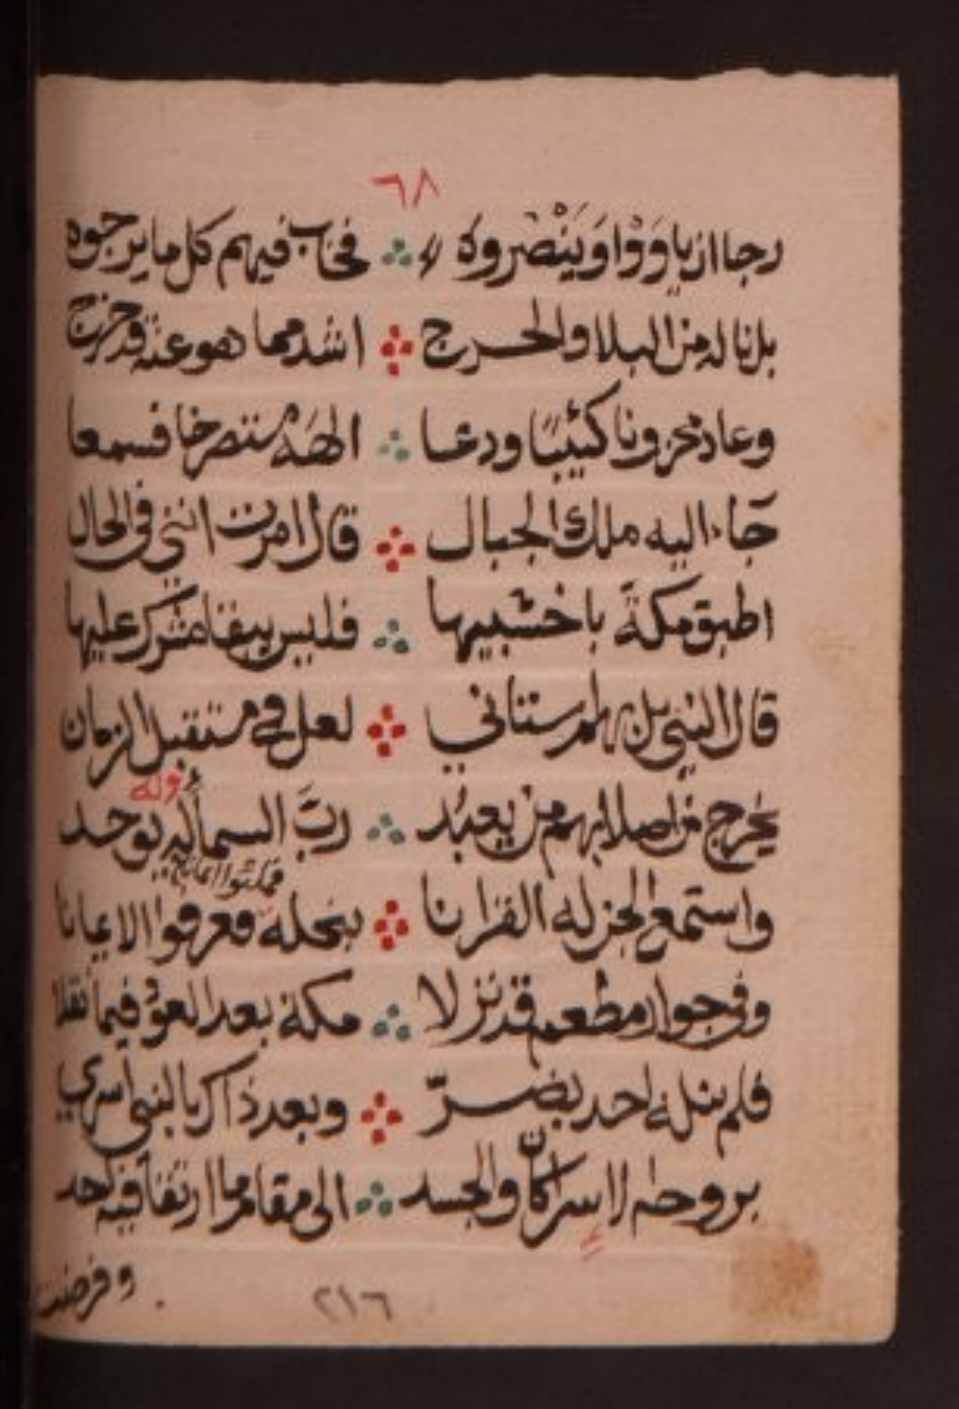 ٦٨
رجا ان ياووا وينصروه فخاب فيهم كل ما يرجوه
بل نا له من البلا والحرج اشد مما هو عنه قد خرج
وعاد محزونا كئيبا ودعا الهه مستصرخا فسمعا
جاء اليه ملك الجبال قال امرت انني في الحال
اطبق مكة باخشبيها فليس يبقا مشرك عليها
قال النبي بل لهم ستاني لعل في مستقبل الزمان
يخرج من اصلابهم من يعبد رب السما اليه يوحد
وله
واستمع الجن له القرانا بنخلة فعرفوا الايمانا
وفي جوار مطعم قد نزلا مكة بعد العود فيما نقلا
فلم ينله احد بضر وبعد ذا كر بالنبي اسري
بروحه الاسرا كان والجسد الى مقام ما ارتقا فيه احد
وفرضت
٢١٦